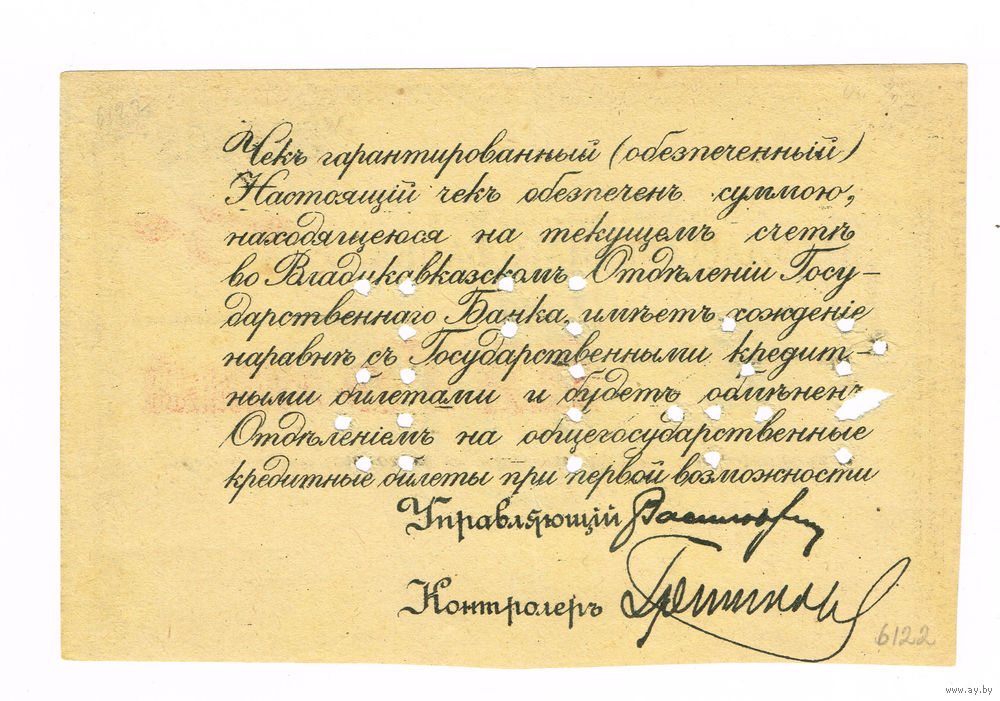 6122
Чекъ гарантированный (обезпеченный)
Настоящій чекъ обезпеченъ суммою,
находящеюся на текущемъ счетѣ
во Владикавказскомъ Отдѣленіи Госу-
дарственнаго Банка, имѣетъ хожденіе
наравнѣ съ Государственными кредит-
ными билетами и будетъ обмѣненъ
Отдѣленіемъ на общегосударственные
кредитные билеты при первой возможности
Управляющій
Контролеръ
6122
www.ay.by